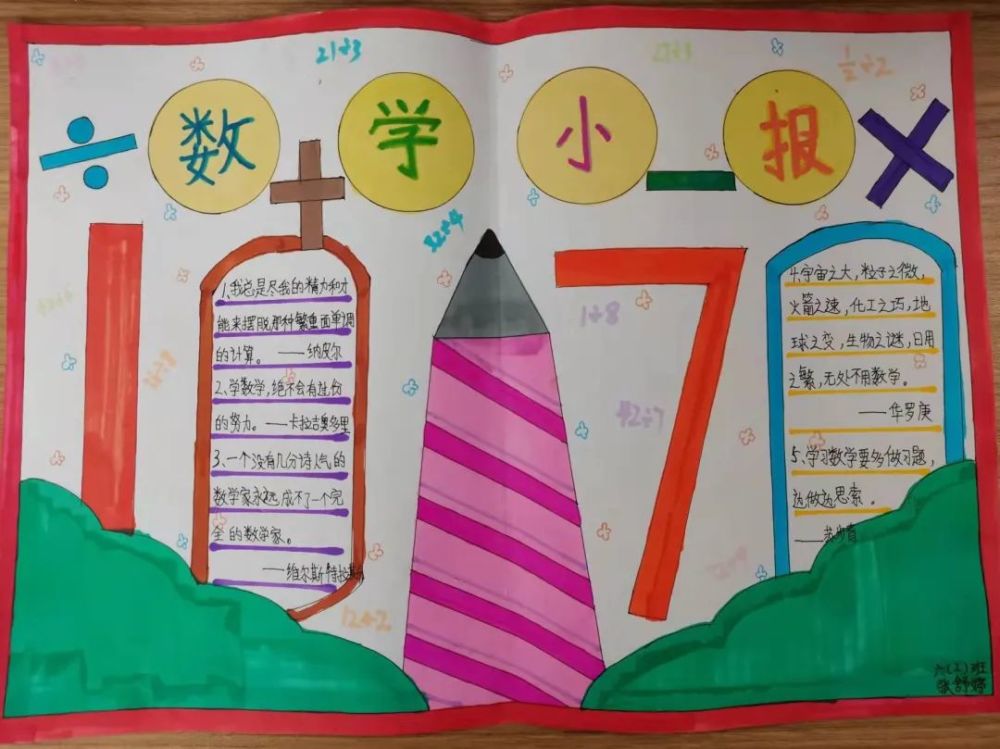 数学小报
21÷3
1/2÷2
32÷4
1÷8
42÷7
12÷2
1、我总是尽我的精力和才
能来摆脱那种繁重而单调
的计算。——纳皮尔
2、学数学,绝不会有过份
的努力。——卡拉吉奥多里
3、一个没有几分诗人气的
数学家永远成不了一个完
全的数学家。
——维尔斯特拉斯
4、宇宙之大,粒子之微,
火箭之速,化工之巧,地
球之变,生物之谜,日用
之繁,无处不用数学。
——华罗庚
5、学习数学要多做习题,
边做边思索。
——苏步青
六(2)班
张舒婷